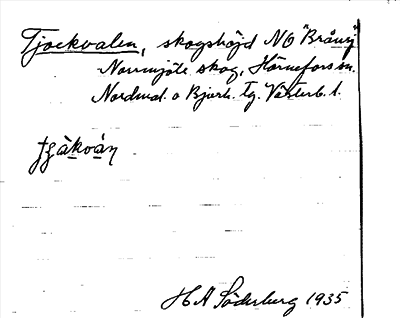 Tjockvalen, skogshöjd NO "Bråny"
Norrmjöle skog, Hörnefors sn.
Nordmal. o Bjurh. tg. Västerb. l.
H A Söderberg 1935